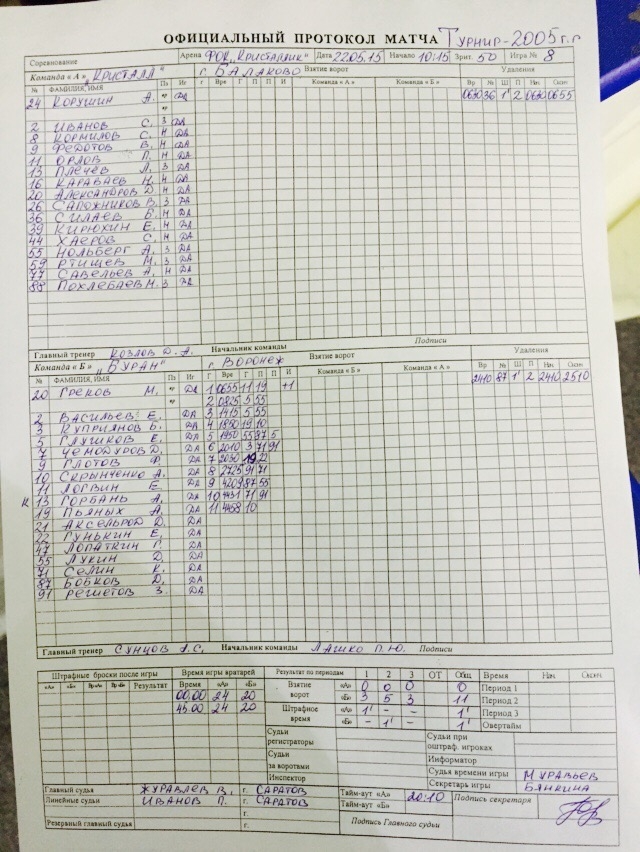 ОФИЦИАЛЬНЫЙ ПРОТОКОЛ МАТЧА Турнир-2005г.р
Соревнование Арена ФОК „Кристаллик" Дата 22.05.15 Начало 10:15 Зрит. 50 Игра № 8
Команда «А» „Кристалл" г. Балаково Взятие ворот Удаления
№ ФАМИЛИЯ, ИМЯ Пз Иг Г Вре Г П П И Команда «А» Команда «Б» Вр № Ш П Нач Окон
24 Корушин А. ДА 0630 36 1' 2 0630 0655
2 Иванов С. З ДА
8 Кормилов С. Н ДА
9 Федотов В. Н ДА
11 Орлов П. Н ДА
13 Плечев Л. З ДА
16 Караваев Н. Н ДА
20 Александров Д. Н ДА
26 Сапожников В. З ДА
36 Силаев Б. Н ДА
39 Кирюхин Е. Н ДА
44 Хаеров С. Н ДА
55 Нольберг А. З ДА
59 Ртищев М. З ДА
77 Савельев А. Н ДА
88 Похлебаев М. З ДА
Главный тренер Козлов Д.А. Начальник команды Подписи
Команда «Б» „Буран" г. Воронеж Взятие ворот Удаления
№ ФАМИЛИЯ, ИМЯ Пз Иг Г Вре Г П П И Команда «Б» Команда «А» Вр № Ш П Нач Окон
20 Греков М. ДА 1 0655 11 19 +1 2410 87 1' 2 2410 2510
2 0825 5 55
2 Васильев Е. ДА 3 1415 5 55
3 Куприянов Б. ДА 4 1850 19 10
5 Глушков Е. ДА 5 1950 55 87 5
7 Чемодуров Д. ДА 6 2010 3 71 91
9 Глотов Ф. ДА 7 2030 19 22
10 Скрынченко А. ДА 8 2725 91 71
11 Логвин Е. ДА 9 4209 87 55
К 13 Горбань А. ДА 10 4431 71 91
19 Пьяных А. ДА 11 4458 10
21 Аксельрод Д. ДА
22 Гунькин Е. ДА
47 Лопаткин Г. ДА
55 Лукин Д. ДА
71 Селин К. ДА
87 Бобков Д. ДА
91 Решетов З. ДА
Главный тренер Сунцов А.С. Начальник команды Лашко П.Ю. Подписи
Штрафные броски после игры Время игры вратарей Результат по периодам 1 2 3 ОТ Общ Время Нач. Оконч
«А» «Б» Вр«А» Вр«Б» Результат Время «А» «Б» Взятие ворот «А» 0 0 0 0 Период 1
00.00 24 20 «Б» 3 5 3 11 Период 2
45.00 24 20 Штрафное время «А» 1' - - 1' Период 3
«Б» - 1' - 1' Овертайм
Судьи регистраторы Судьи при оштраф. игроках
Судьи за воротами Информатор
Судья времени игры Муравьев
Инспектор Секретарь игры Банкина
Главный судья Журавлев В. г. Саратов Тайм-аут «А» Подпись секретаря
Линейные судьи Иванов П. г. Саратов Тайм-аут «Б» 20:10
г.
Резервный главный судья г. Подпись Главного судьи